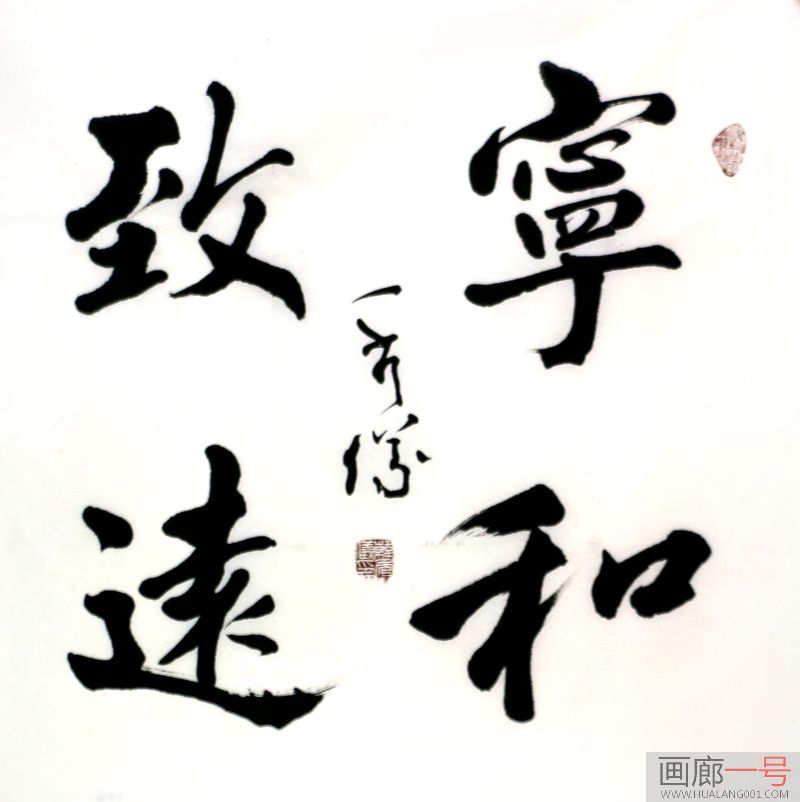 寧和
致遠
画廊一号
WWW.HUALANG001.COM